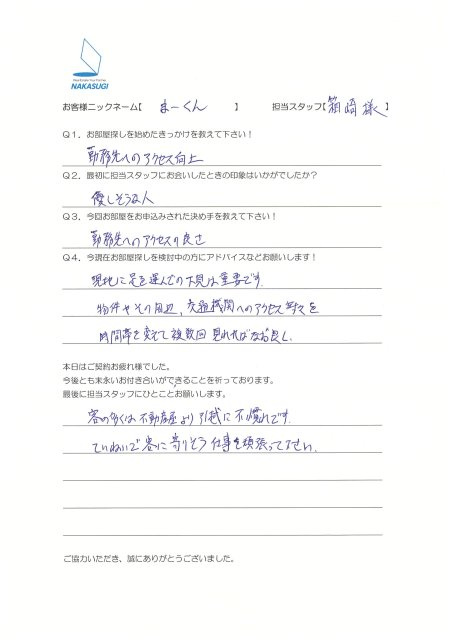 Real Estate Your Partner
NAKASUGI
お客様ニックネーム【 まーくん 】 担当スタッフ【箱崎様】
Q１．お部屋探しを始めたきっかけを教えて下さい！
勤務先へのアクセス向上
Q２．最初に担当スタッフにお会いしたときの印象はいかがでしたか？
優しそうな人
Q３．今回お部屋をお申込みされた決め手を教えて下さい！
勤務先へのアクセスの良さ
Q４．今現在お部屋探しを検討中の方にアドバイスなどお願いします！
現地に足を運んでの下見は重要です.
物件やその周辺, 交通機関へのアクセス等々を
時間帯を変えて複数回見れればなお良し.
本日はご契約お疲れ様でした。
今後とも末永いお付き合いができることを祈っております。
最後に担当スタッフにひとことお願いします。
客の多くは不動産屋より引越に不慣れです.
ていねいで客に寄りそう仕事を頑張って下さい.
ご協力いただき、誠にありがとうございました。